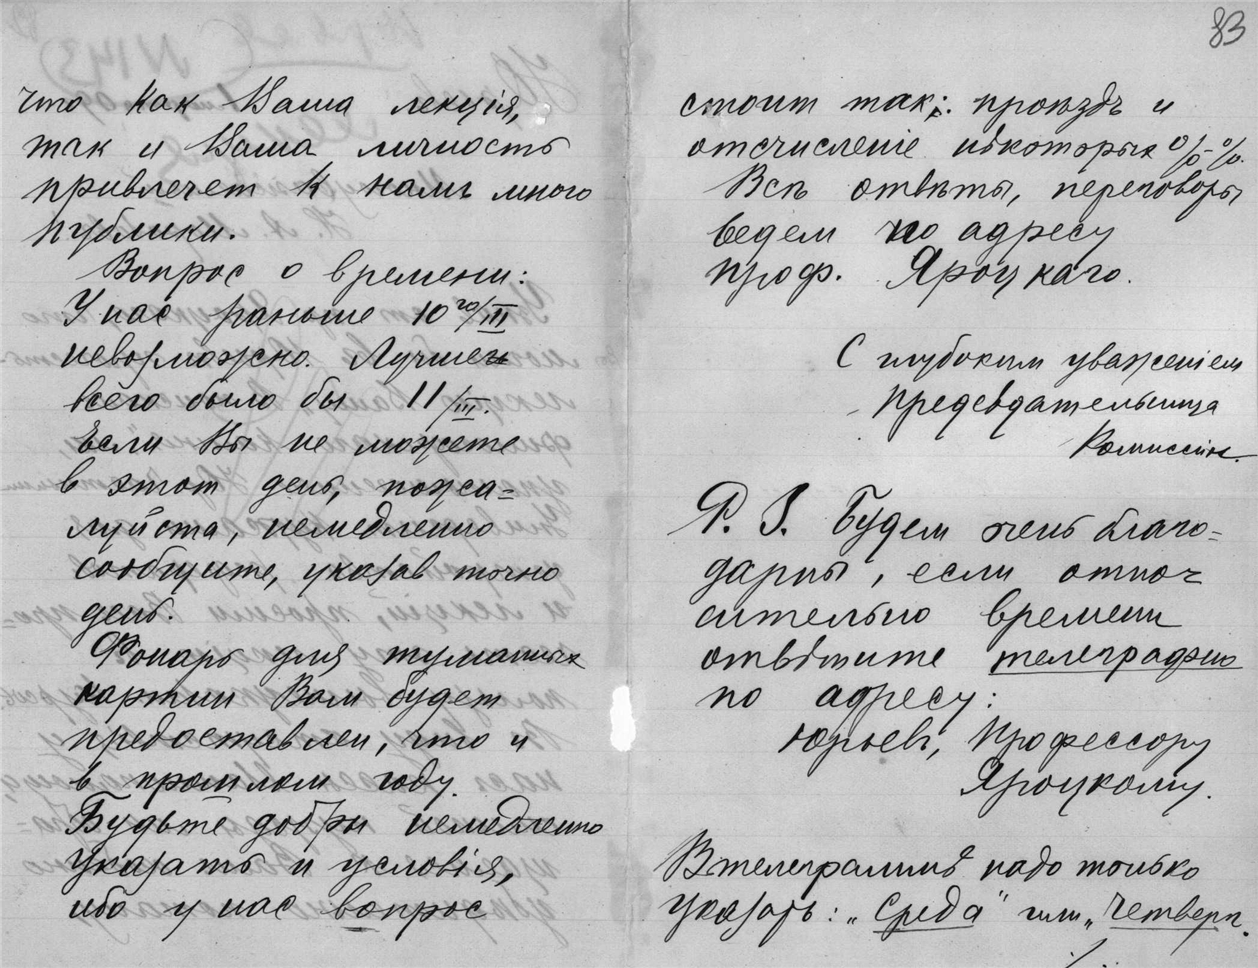 что как Ваша лекція,
так и Ваша личность
привлечет к намъ много
публики.
Вопрос о времени:
У нас раньше 10го/III
невозможно. Лучше
всего было бы 11/III.
Если Вы не можете
в этот день, пожа=
луйста, немедленно
сообщите, указав точно
день.
Фонарь для туманных
картин Вам будет
предоставлен, что и
в прошлом году.
Будьте добры немедленно
указать и условія,
ибо у нас вопрос
83
стоит так: проѣздъ и
отсчисленіе нѣкоторых %-%.
Всѣ отвѣты, переговоры
ведем по адресу
проф. Яроцкаго.
С глубоким уваженіем
Предсѣдательница
Комиссіи.
P. S. Будем очень благо=
дарны, если относ
сительно времени
отвѣтите телеграфно
по адресу:
Юрьевъ, Профессору
Яроцкому.
В телеграммѣ надо только
указать: „Среда" или „Четверг.